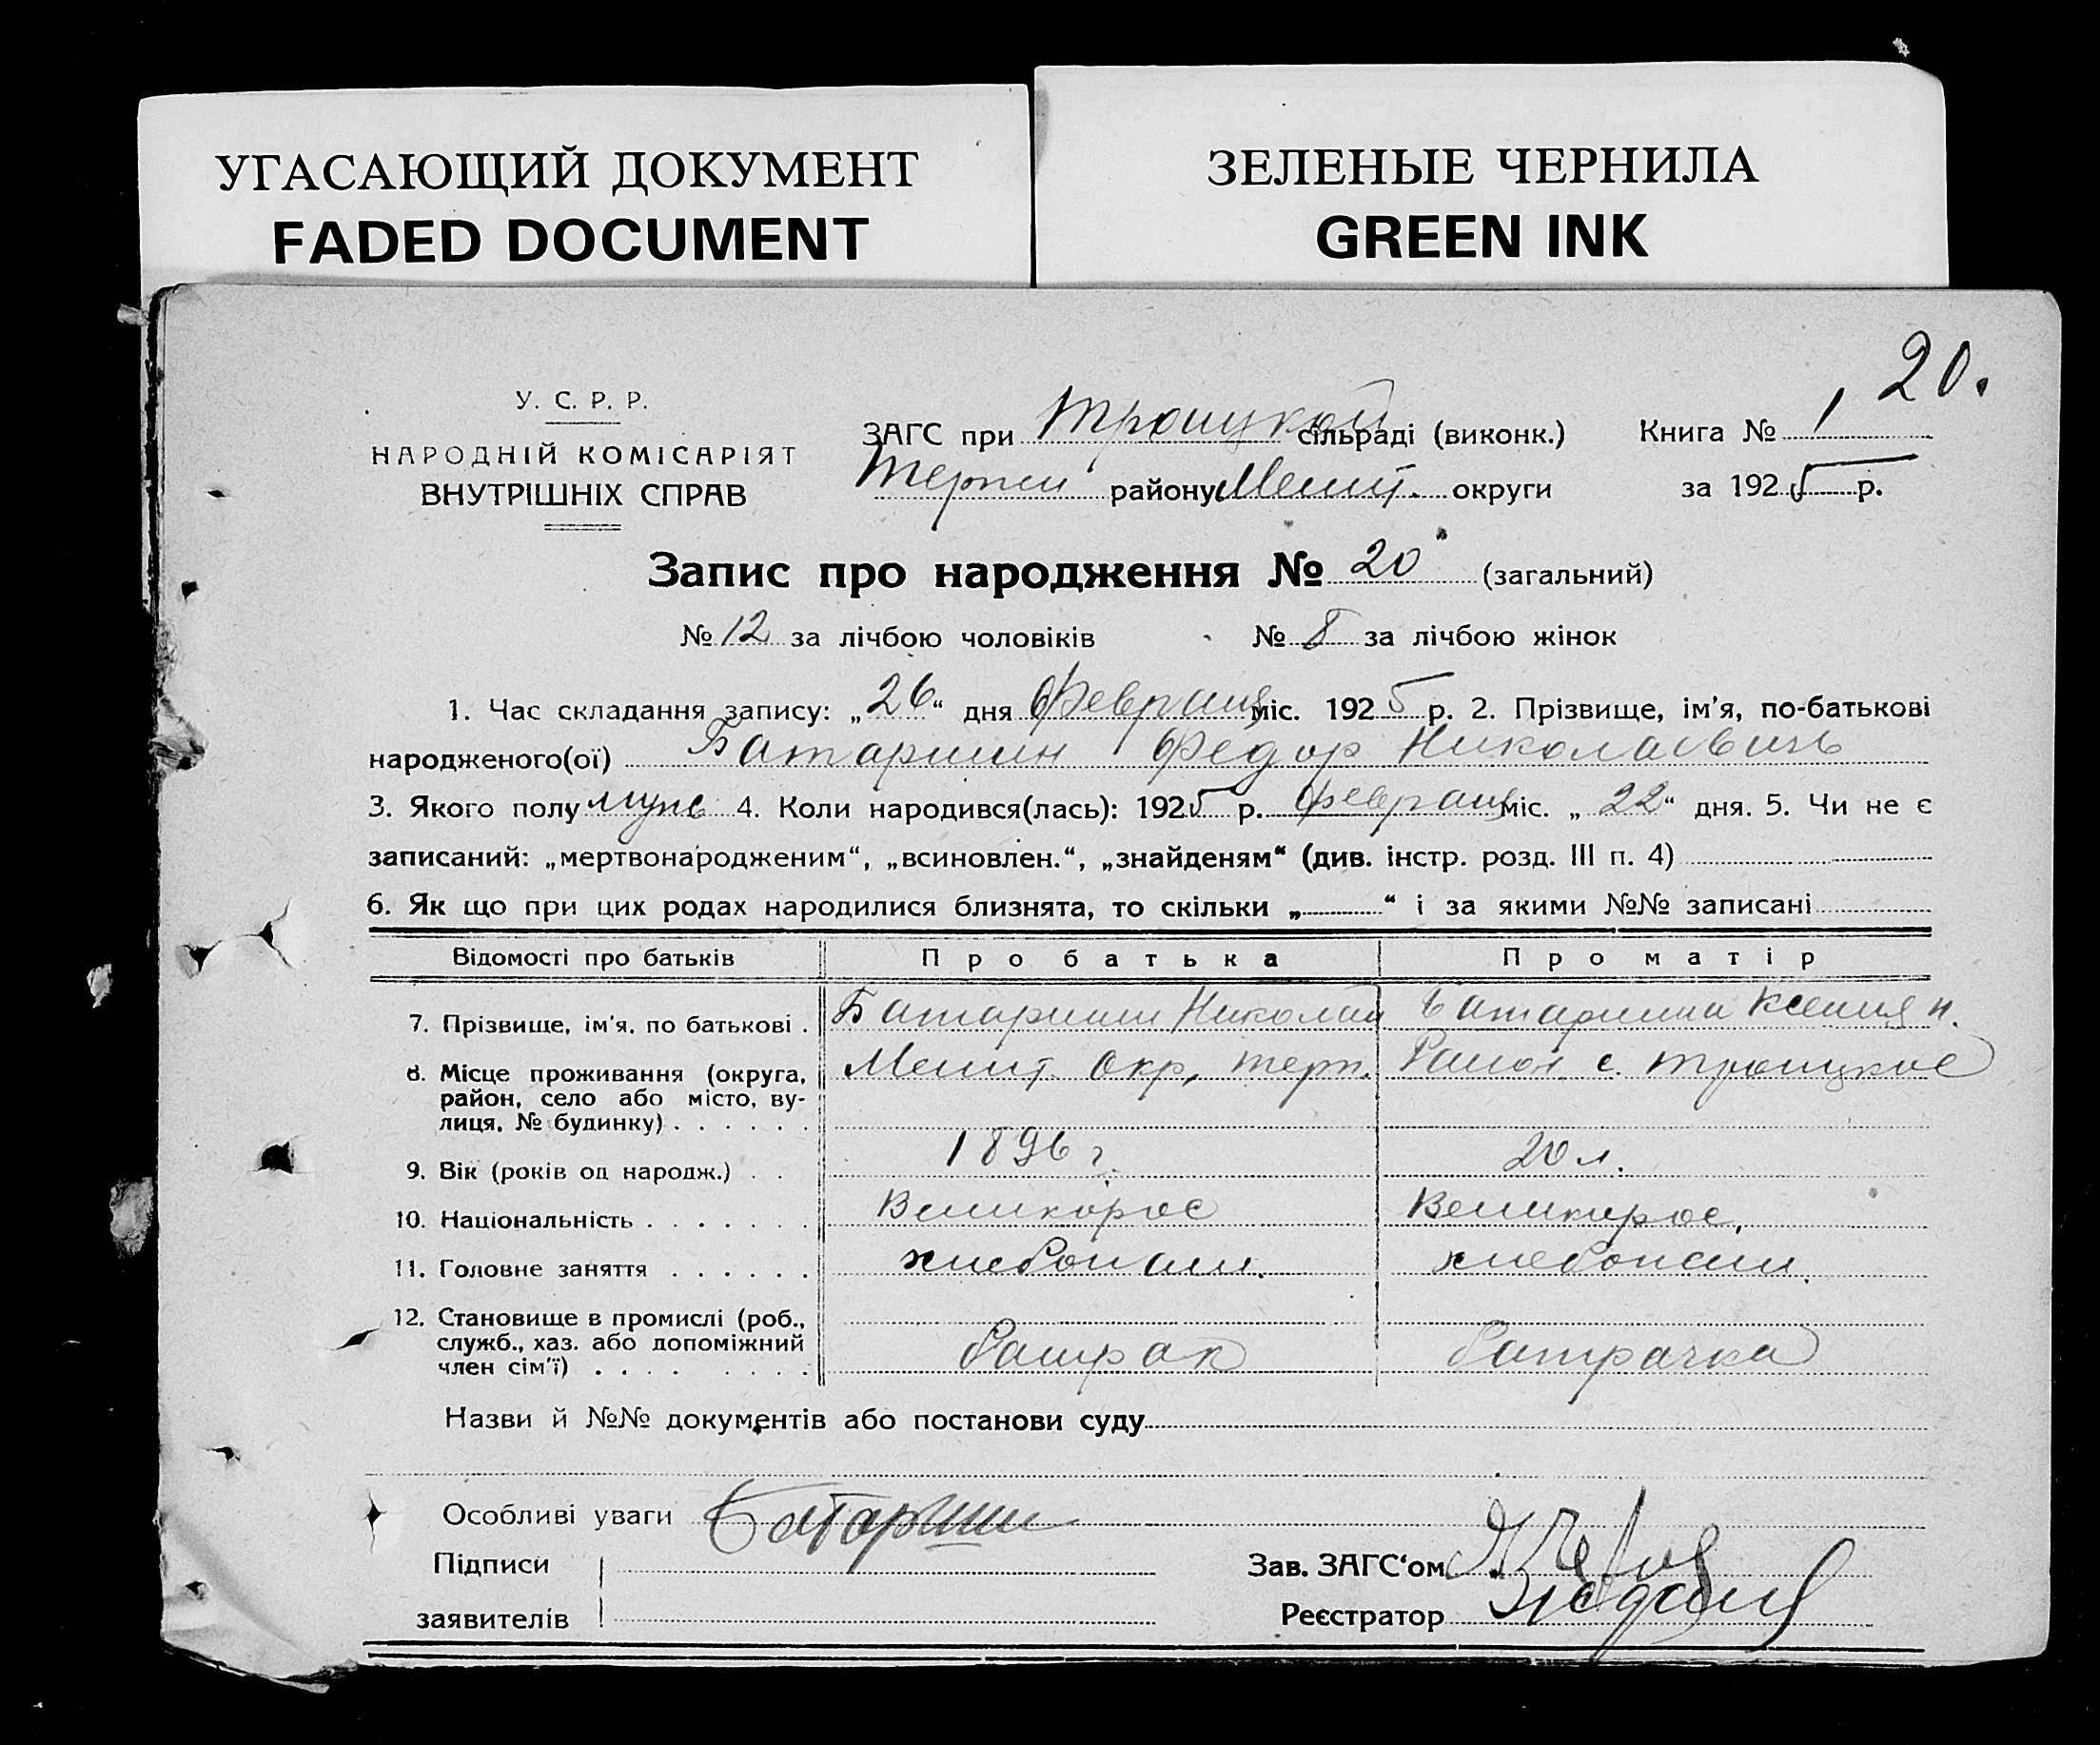 УГАСАЮЩИЙ ДОКУМЕНТ
FADED DOCUMENT
ЗЕЛЕНЫЕ ЧЕРНИЛА
GREEN INK
20.
У. С. Р. Р.
НАРОДНІЙ КОМІСАРІЯТ
ВНУТРІШНІХ СПРАВ
ЗАГС при Троицкой сільраді (виконк.)
Терпен району Мелит. округи
Книга № 1
за 1925 р.
Запис про народження № 20 (загальний)
№ 12 за лічбою чоловіків № 8 за лічбою жінок
1. Час складання запису: „26“ дня Февраля міс. 1925 р. 2. Прізвище, ім'я, по-батькові
народженого(ої) Батаршин Федор Николаевичь
3. Якого полу муж 4. Коли народився(лась): 1925 р. Февраля міс. „22“ дня. 5. Чи не є
записаний: „мертвонародженим“, „всиновлен.“, „знайденям“ (див. інстр. розд. III п. 4)
6. Як що при цих родах народилися близнята, то скільки „ “ і за якими №№ записані
Відомості про батьків Про батька Про матір
7. Прізвище, ім'я, по батькові . Батаршин Николай Батаршина Ксения Н.
8. Місце проживання (округа, Мелит. Окр, терп. Район с. Троицкое
район, село або місто, ву-
лиця, № будинку) . . . . . .
9. Вік (років од народж.) . . 1896 г. 20 л.
10. Національність . . . . . . . Великорос Великорос.
11. Головне заняття . . . . . . хлебопаш. хлебопаш.
12. Становище в промислі (роб.,
служб., хаз. або допоміжний
член сім'ї) . . . . . . . . батрак батрачка
Назви й №№ документів або постанови суду
Особливі уваги Батаршин
Підписи
заявителів
Зав. ЗАГС‘ом
Реєстратор